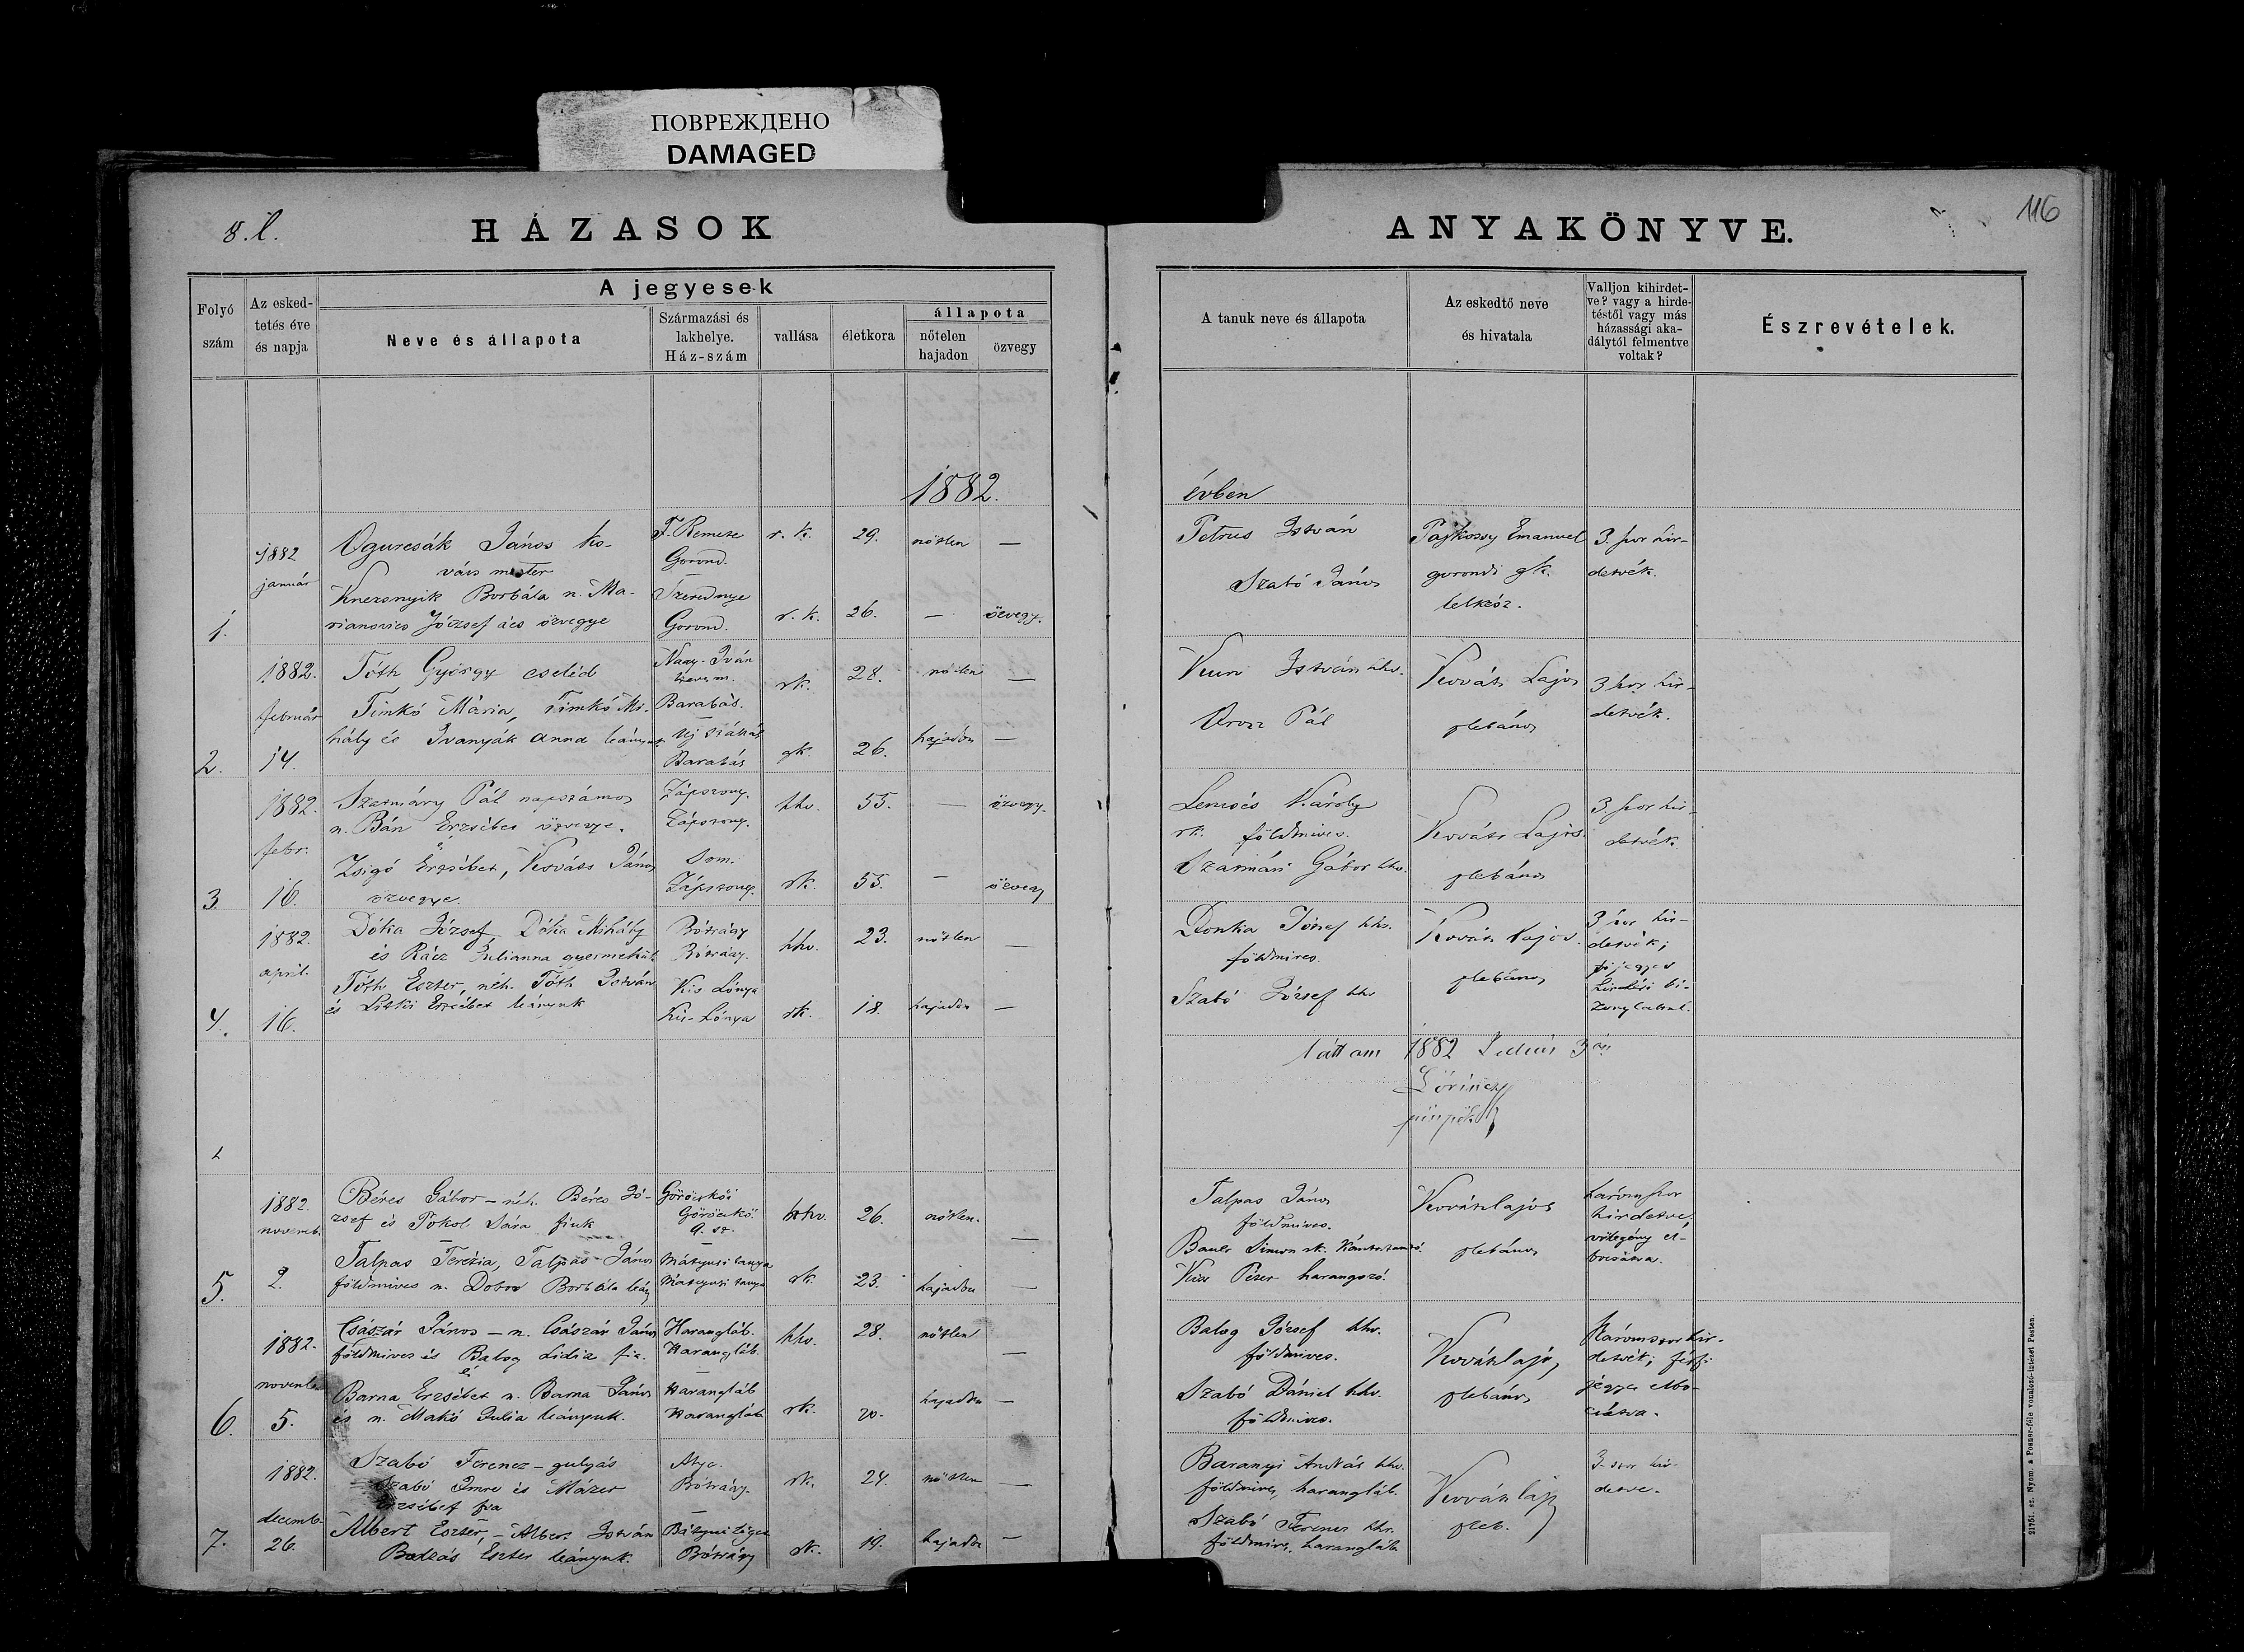 ПОВРЕЖДЕНО
DAMAGED
8. l.
HÁZASOK
ANYAKÖNYVE.
116
Folyó
szám
Az esked-
tetés éve
és napja
A jegyesek
Neve és állapota
Származási és
lakhelye.
Ház-szám
vallása
életkora
állapota
nőtelen
hajadon
özvegy
A tanuk neve és állapota
Az eskedtő neve
és hivatala
Valljon kihirdet-
ve? vagy a hirde-
téstől vagy más
házassági aka-
dálytól felmentve
voltak?
Észrevételek.
1882.
évben
1.
1882
január
Ogurcsák János ko-
vács mester
Knezsnyik Borbála n. Ma-
rianovics József ács özvegye
F. Remete
Gorond.
Szerednye
Gorond.
r. k.
r. k.
29.
26.
nőtlen
—
—
özvegy.
Petrus István
Szabó János
Pajkossy Emanuel
gorondi gk.
lelkész.
3. szor hir-
detvék.
2.
1882.
február
14.
Tóth György cseléd
Timkó Mária, Timkó Mi-
hály és Ivanyák Anna leányuk
Nagy-Iván
Barabás.
Uj
Barabás
rk.
gk.
28.
26.
nőtlen
hajadon
—
—
István hhv.
Orosz Pál
Kováts Lajos
plebános
3 szor hir-
detvék.
3.
1882.
febr.
16.
Szatmáry Pál napszámos
n. Bán Erzsébet özvegye.
és
Zsigó Erzsébet, Kováts János
özvegye.
Zápszony.
Zápszony.
Som.
Zápszony.
hhv.
rk.
55.
55.
—
—
özvegy.
özvegy
Lencsés Károly
rk. földmives.
Gábor hhv.
Kováts Lajos.
plebános
3 szor hir-
detvék.
4.
1882.
april.
16.
Dóka József, Dóka Mihály
és Rácz Julianna gyermekük
Tóth Eszter, néh. Tóth István
és Erzsébet leányuk
Bótrágy
Bótrágy.
Kis Lónya
Kis-Lónya
hhv.
rk.
23.
18.
nőtlen
hajadon
—
—
Donka József hhv.
földmives.
Szabó József hhv
Kováts Lajos.
plebános
3 szor hir-
detvék;
hirdetési bi-
zonylattal.
láttam 1882 Julius 3án
Lőrincz
püspök
5.
1882.
novemb.
2.
Béres Gábor – néh. Béres Jó-
zsef és Pokol Sára fiuk
Talpas Terézia, Talpas János
földmives n. Dobos Borbála leány
Göröcskői
Göröcskő.
Mátyusi tanya
Mátyusi tanya
hhv.
rk.
26.
23.
nőtlen.
hajadon
—
—
Talpas János
földmives.
Bauer Simon rk. Kántortanító.
Kiss Péter harangozó.
Kováts Lajos
plebános
három szor
hirdetve,
vőlegény el-
bocsátva.
6.
1882.
novemb.
5.
Császár János – n. Császár János
földmives és Balog Lidia fia.
és
Barna Erzsébet n. Barna János
és n. Makó Julia leányuk.
Harangláb.
Harangláb.
Harangláb
Harangláb
hhv.
rk.
28.
20.
nőtlen
hajadon
—
—
Balog József hhv.
földmives.
Szabó Dániel hhv.
földmives.
Kováts Lajos
plebános
Háromszor hir-
detvék; férfi
jegyes elbo-
csátva.
7.
1882.
decemb.
26.
Szabó Ferencz – gulyás
Szabó Imre és Mázer
Erzsébet fia
Albert Eszter, – Albert István
Eszter leányuk.
Atya.
Bótrágy.
Bátyui
Bótrágy
rk.
rk.
24.
19.
nőtlen
hajadon
—
—
Baranyi András hhv.
földmives, harangláb.
Szabó Ferencz hhv.
földmives, harangláb
Kováts Lajos
pleb.
3-szor hir-
detve.
21751. sz. Nyom. a Posner-féle vonalozó-intézet Pesten.